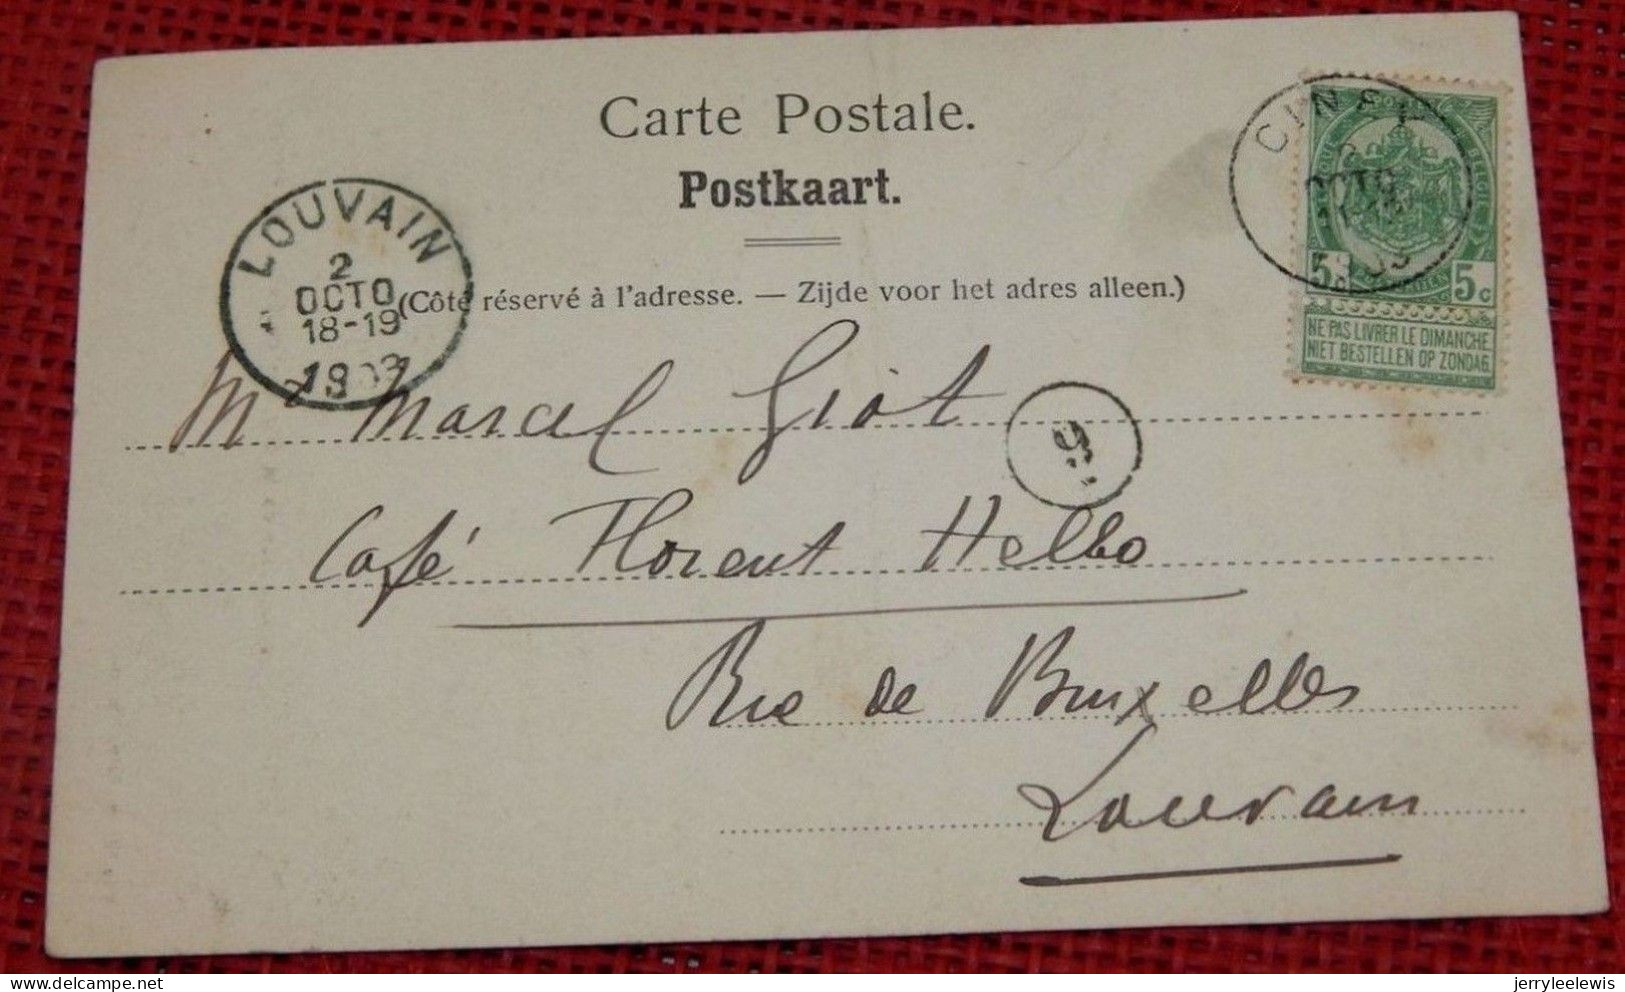 Carte Postale.
Postkaart.
(Côté réservé à l'adresse. — Zijde voor het adres alleen.)
LOUVAIN
2
OCTO
18-19
1903
CINEY
OCTO
03
5c 5c
NE PAS LIVRER LE DIMANCHE
NIET BESTELLEN OP ZONDAG
Mr Marcel Giot
Café Florent Helbo
Rue de Bruxelles
Louvain
jerryleelewis